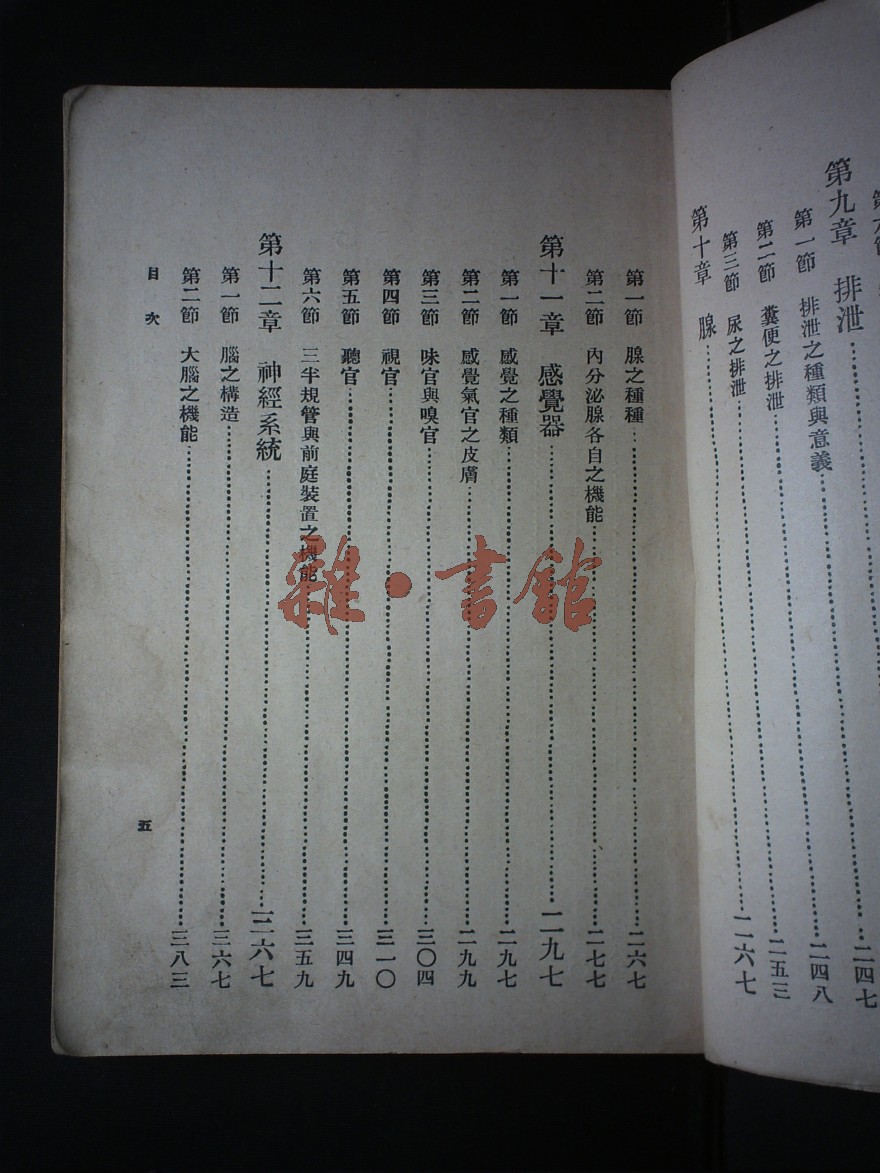 第九章 排泄……二四七
第一節 排泄之種類與意義……二四八
第二節 糞便之排泄……二五三
第三節 尿之排泄
第十章 腺……二六七
第一節 腺之種種……二六七
第二節 內分泌腺各自之機能……二七七
第十一章 感覺器……二九七
第一節 感覺之種類……二九七
第二節 感覺氣官之皮膚……二九九
第三節 味官與嗅官……三〇四
第四節 視官……三一〇
第五節 聽官……三四九
第六節 三半規管與前庭裝置之機能……三五九
第十二章 神經系統……三六七
第一節 腦之構造……三六七
第二節 大腦之機能……三八三
目次
五
雜·書館